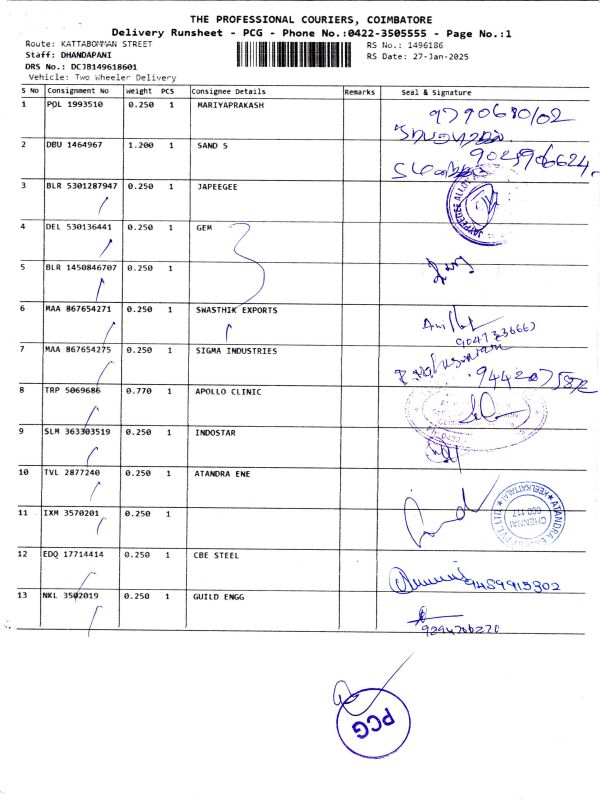 THE PROFESSIONAL COURIERS, COIMBATORE
Delivery Runsheet - PCG - Phone No.:0422-3505555 - Page No.:1
Route: KATTABOMMAN STREET RS No.: 1496186
Staff: DHANDAPANI RS Date: 27-Jan-2025
DRS No.: DCJB149618601
Vehicle: Two Wheeler Delivery
S No Consignment No Weight PCS Consignee Details Remarks Seal & Signature
1 PQL 1993510 0.250 1 MARIYAPRAKASH
2 DBU 1464967 1.200 1 SAND S
3 BLR 5301287947 0.250 1 JAPEEGEE
4 DEL 530136441 0.250 1 GEM
5 BLR 1450846707 0.250 1
6 MAA 867654271 0.250 1 SWASTHIK EXPORTS
7 MAA 867654275 0.250 1 SIGMA INDUSTRIES
8 TRP 5069686 0.770 1 APOLLO CLINIC
9 SLM 363303519 0.250 1 INDOSTAR
10 TVL 2877240 0.250 1 ATANDRA ENE
11 IXM 3570201 0.250 1
CHENNAI
600 117
12 EDQ 17714414 0.250 1 CBE STEEL
9489915302
13 NKL 3502019 0.250 1 GUILD ENGG
PCG